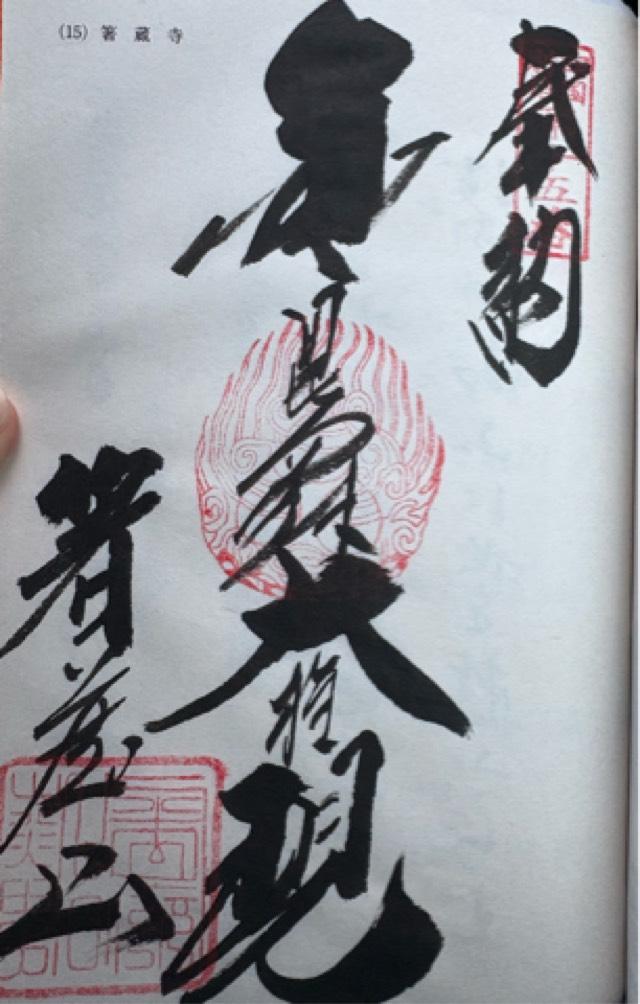 (15) 箸蔵寺
奉納
金毘羅大権現
箸蔵山